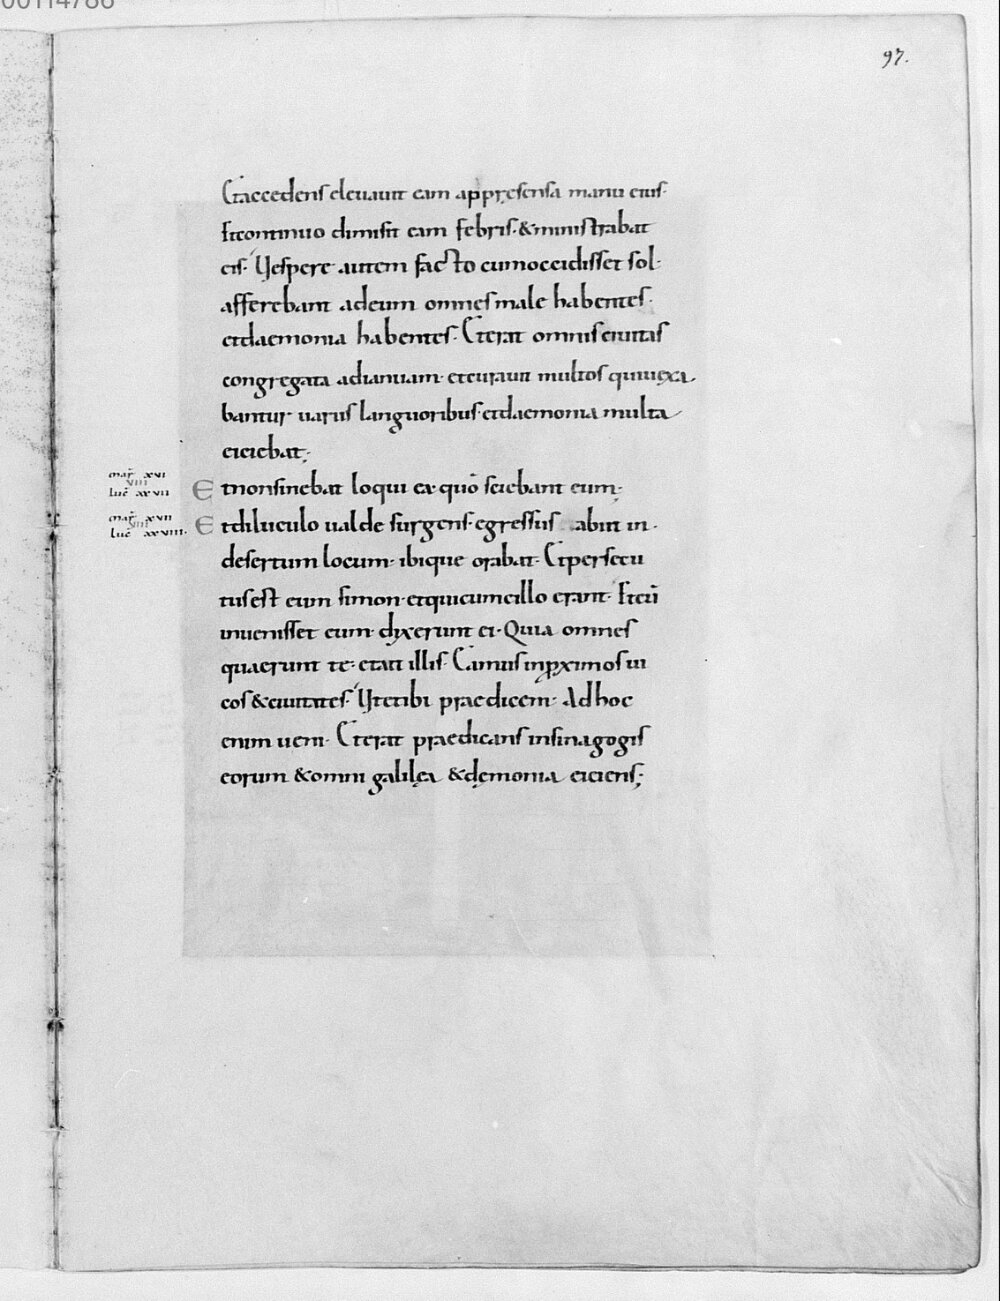 00114786
97.
Etaccedens eleuauit eam appręensa manu eius·
Etcontinuo dimisit eam febris·&ministrabat
eis· Uespere autem facto cumoccidisset sol·
afferebant adeum omnesmale habentes·
etdaemonia habentes· Eterat omnisciuitas
congregata adianuam· etcurauit multos quiuexa
bantur uariis languoribus·etdaemonia multa
eiciebat;·
mar̄ xvi
viii
luc̄ xxvii
Etnonsinebat loqui ea·quō sciebant eum;·
mar̄ xvii
viii
luc̄ xxviii·
Etdiluculo ualde surgens·egressus abiit in·
desertum locum· ibique orabat· Etpersecu
tusest eum simon·etquicumillo erant· Etcū
inuenisset eum· dixerunt ei·Quia omnes
quaerunt te·etait illis· Eamus inproximos ui
cos&ciuitates· Utetibi praedicem· Adhoc
enim ueni· Eterat praedicans insinagogis
eorum &omni galilęa &dęmonia eiciens;·